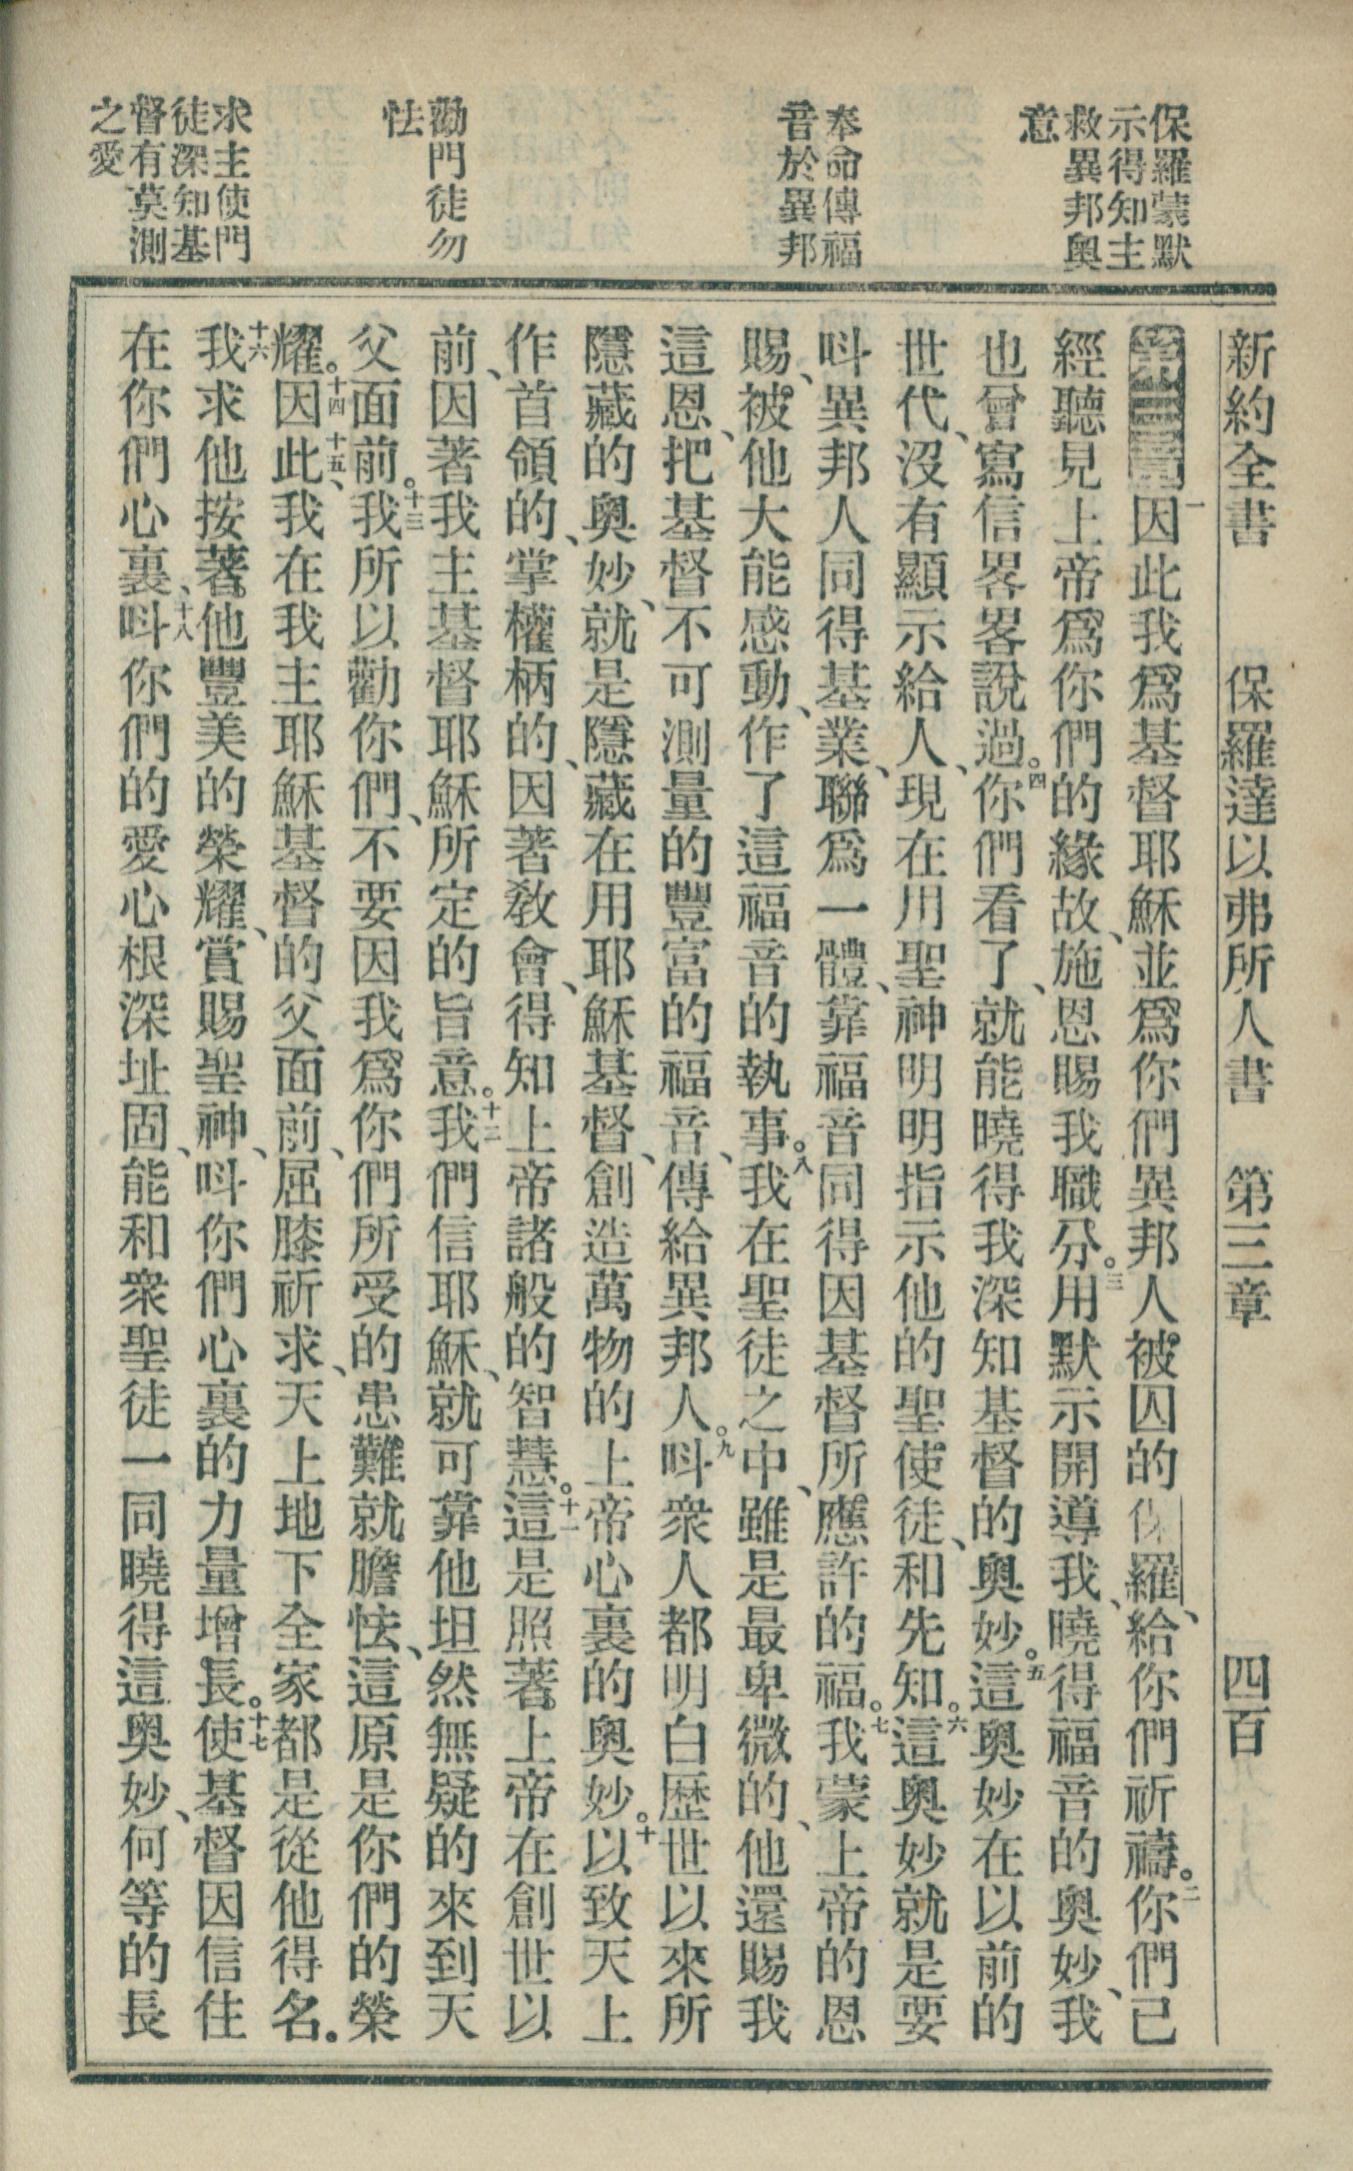 新約全書 保羅達以弗所人書 第三章 四百
保羅蒙默
示得知主
救異邦奧
意
奉命傳福
音於異邦
勸門徒勿
怯
求主使門
徒深知基
督有莫測
之愛
第三章一因此我爲基督耶穌並爲你們異邦人被囚的保羅、給你們祈禱。二你們已
經聽見上帝爲你們的緣故、施恩賜我職分。三用默示開導我、曉得福音的奧妙、我
也曾寫信畧畧說過。四你們看了、就能曉得我深知基督的奧妙。五這奧妙在以前的
世代、沒有顯示給人、現在用聖神明明指示他的聖使徒、和先知。六這奧妙就是要
呌異邦人同得基業、聯爲一體、靠福音同得因基督所應許的福。七我蒙上帝的恩
賜、被他大能感動、作了這福音的執事。八我在聖徒之中、雖是最卑微的、他還賜我
這恩、把基督不可測量的豐富的福音、傳給異邦人。九呌衆人都明白歷世以來所
隱藏的奧妙、就是隱藏在用耶穌基督、創造萬物的上帝心裏的奧妙。十以致天上
作首領的、掌權柄的、因著敎會、得知上帝諸般的智慧。十一這是照著上帝在創世以
前、因著我主基督耶穌所定的旨意。十二我們信耶穌、就可靠他坦然無疑的來到天
父面前。十三我所以勸你們、不要因我爲你們所受的患難就膽怯、這原是你們的榮
耀。十四因此、十五我在我主耶穌基督的父面前、屈膝祈求、天上地下全家都是從他得名。
十六我求他按著他豐美的榮耀、賞賜聖神、呌你們心裏的力量增長。十七使基督因信住
在你們心裏、十八呌你們的愛心根深址固、能和衆聖徒一同曉得這奧妙、何等的長